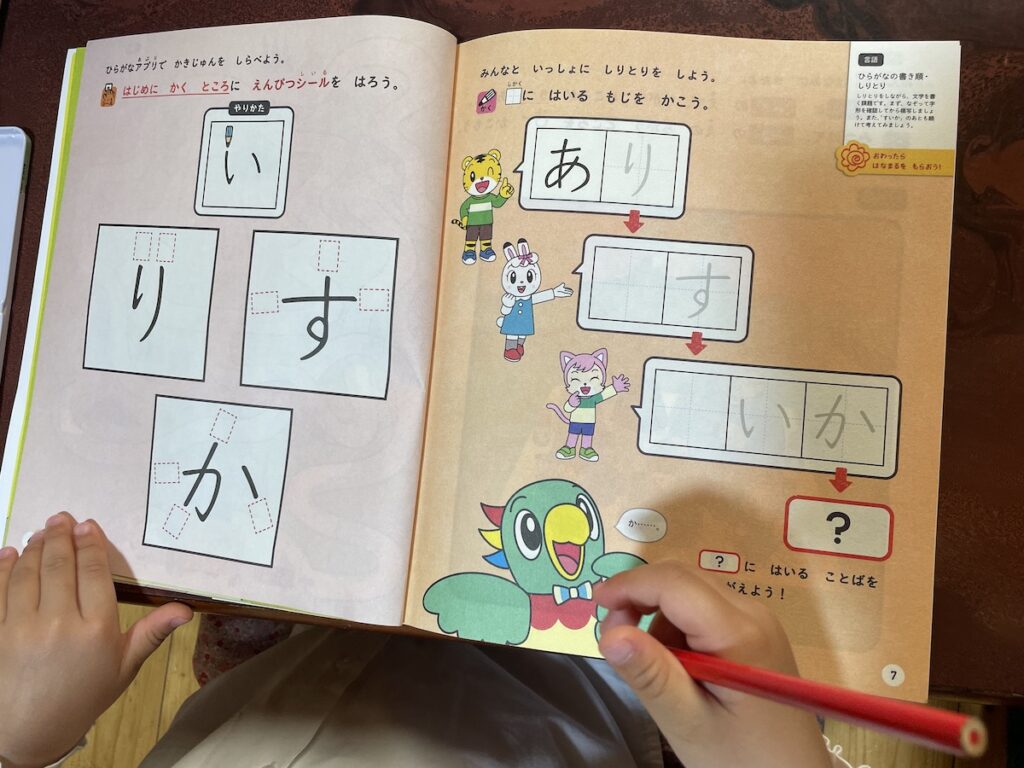 ひらがなアプリで かきじゅんを しらべよう。
はじめに かく ところに えんぴつシールを はろう。
やりかた
い
り
す
か
みんなと いっしょに しりとりを しよう。
かく
に はいる もじを かこう。
あり
す
いか
?
か……。
? に はいる ことばを
がえよう!
言語
ひらがなの書き順・
しりとり
しりとりをしながら、文字を書
く課題です。まず、なぞって字
形を確認してから描写しましょ
う。また、「すいか」のあとも続
けて考えてみましょう。
おわったら
はなまるを もらおう!
7